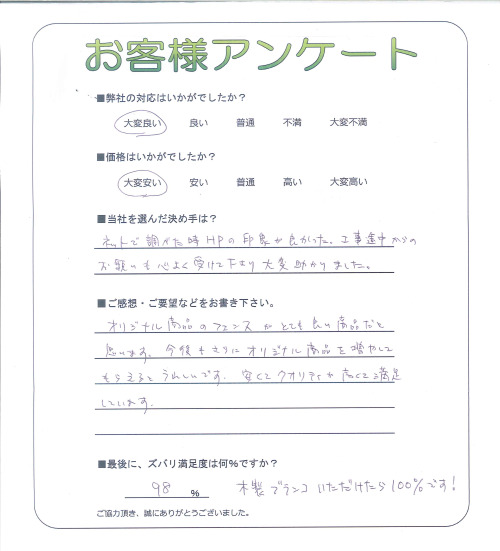 お客様アンケート
■弊社の対応はいかがでしたか?
大変良い 良い 普通 不満 大変不満
■価格はいかがでしたか?
大変安い 安い 普通 高い 大変高い
■当社を選んだ決め手は?
ネットで調べた時HPの印象が良かった。工事途中からの
お願いも心よく受けて下さり大変助かりました。
■ご感想・ご要望などをお書き下さい。
オリジナル商品のフェンスがとても良い商品だと
思います。今後もさらにオリジナル商品を増やして
もらえるとうれしいです。安くてクオリティが高くて満足
しています。
■最後に、ズバリ満足度は何%ですか?
98 % 木製ブランコいただけたら100%です!
ご協力頂き、誠にありがとうございました。